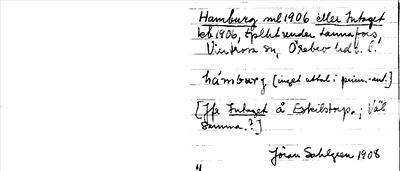 Hamburg ml 1906 eller Intaget
lht 1906, Eplht under Lannafors,
Vintrosa sn, Örebro hd o. l.
hámburg [inget uttal i prim.-ant.]
[Jfr Intaget å Eskilstorp.; Väl
samma.?]
Jöran Sahlgren 1908
"